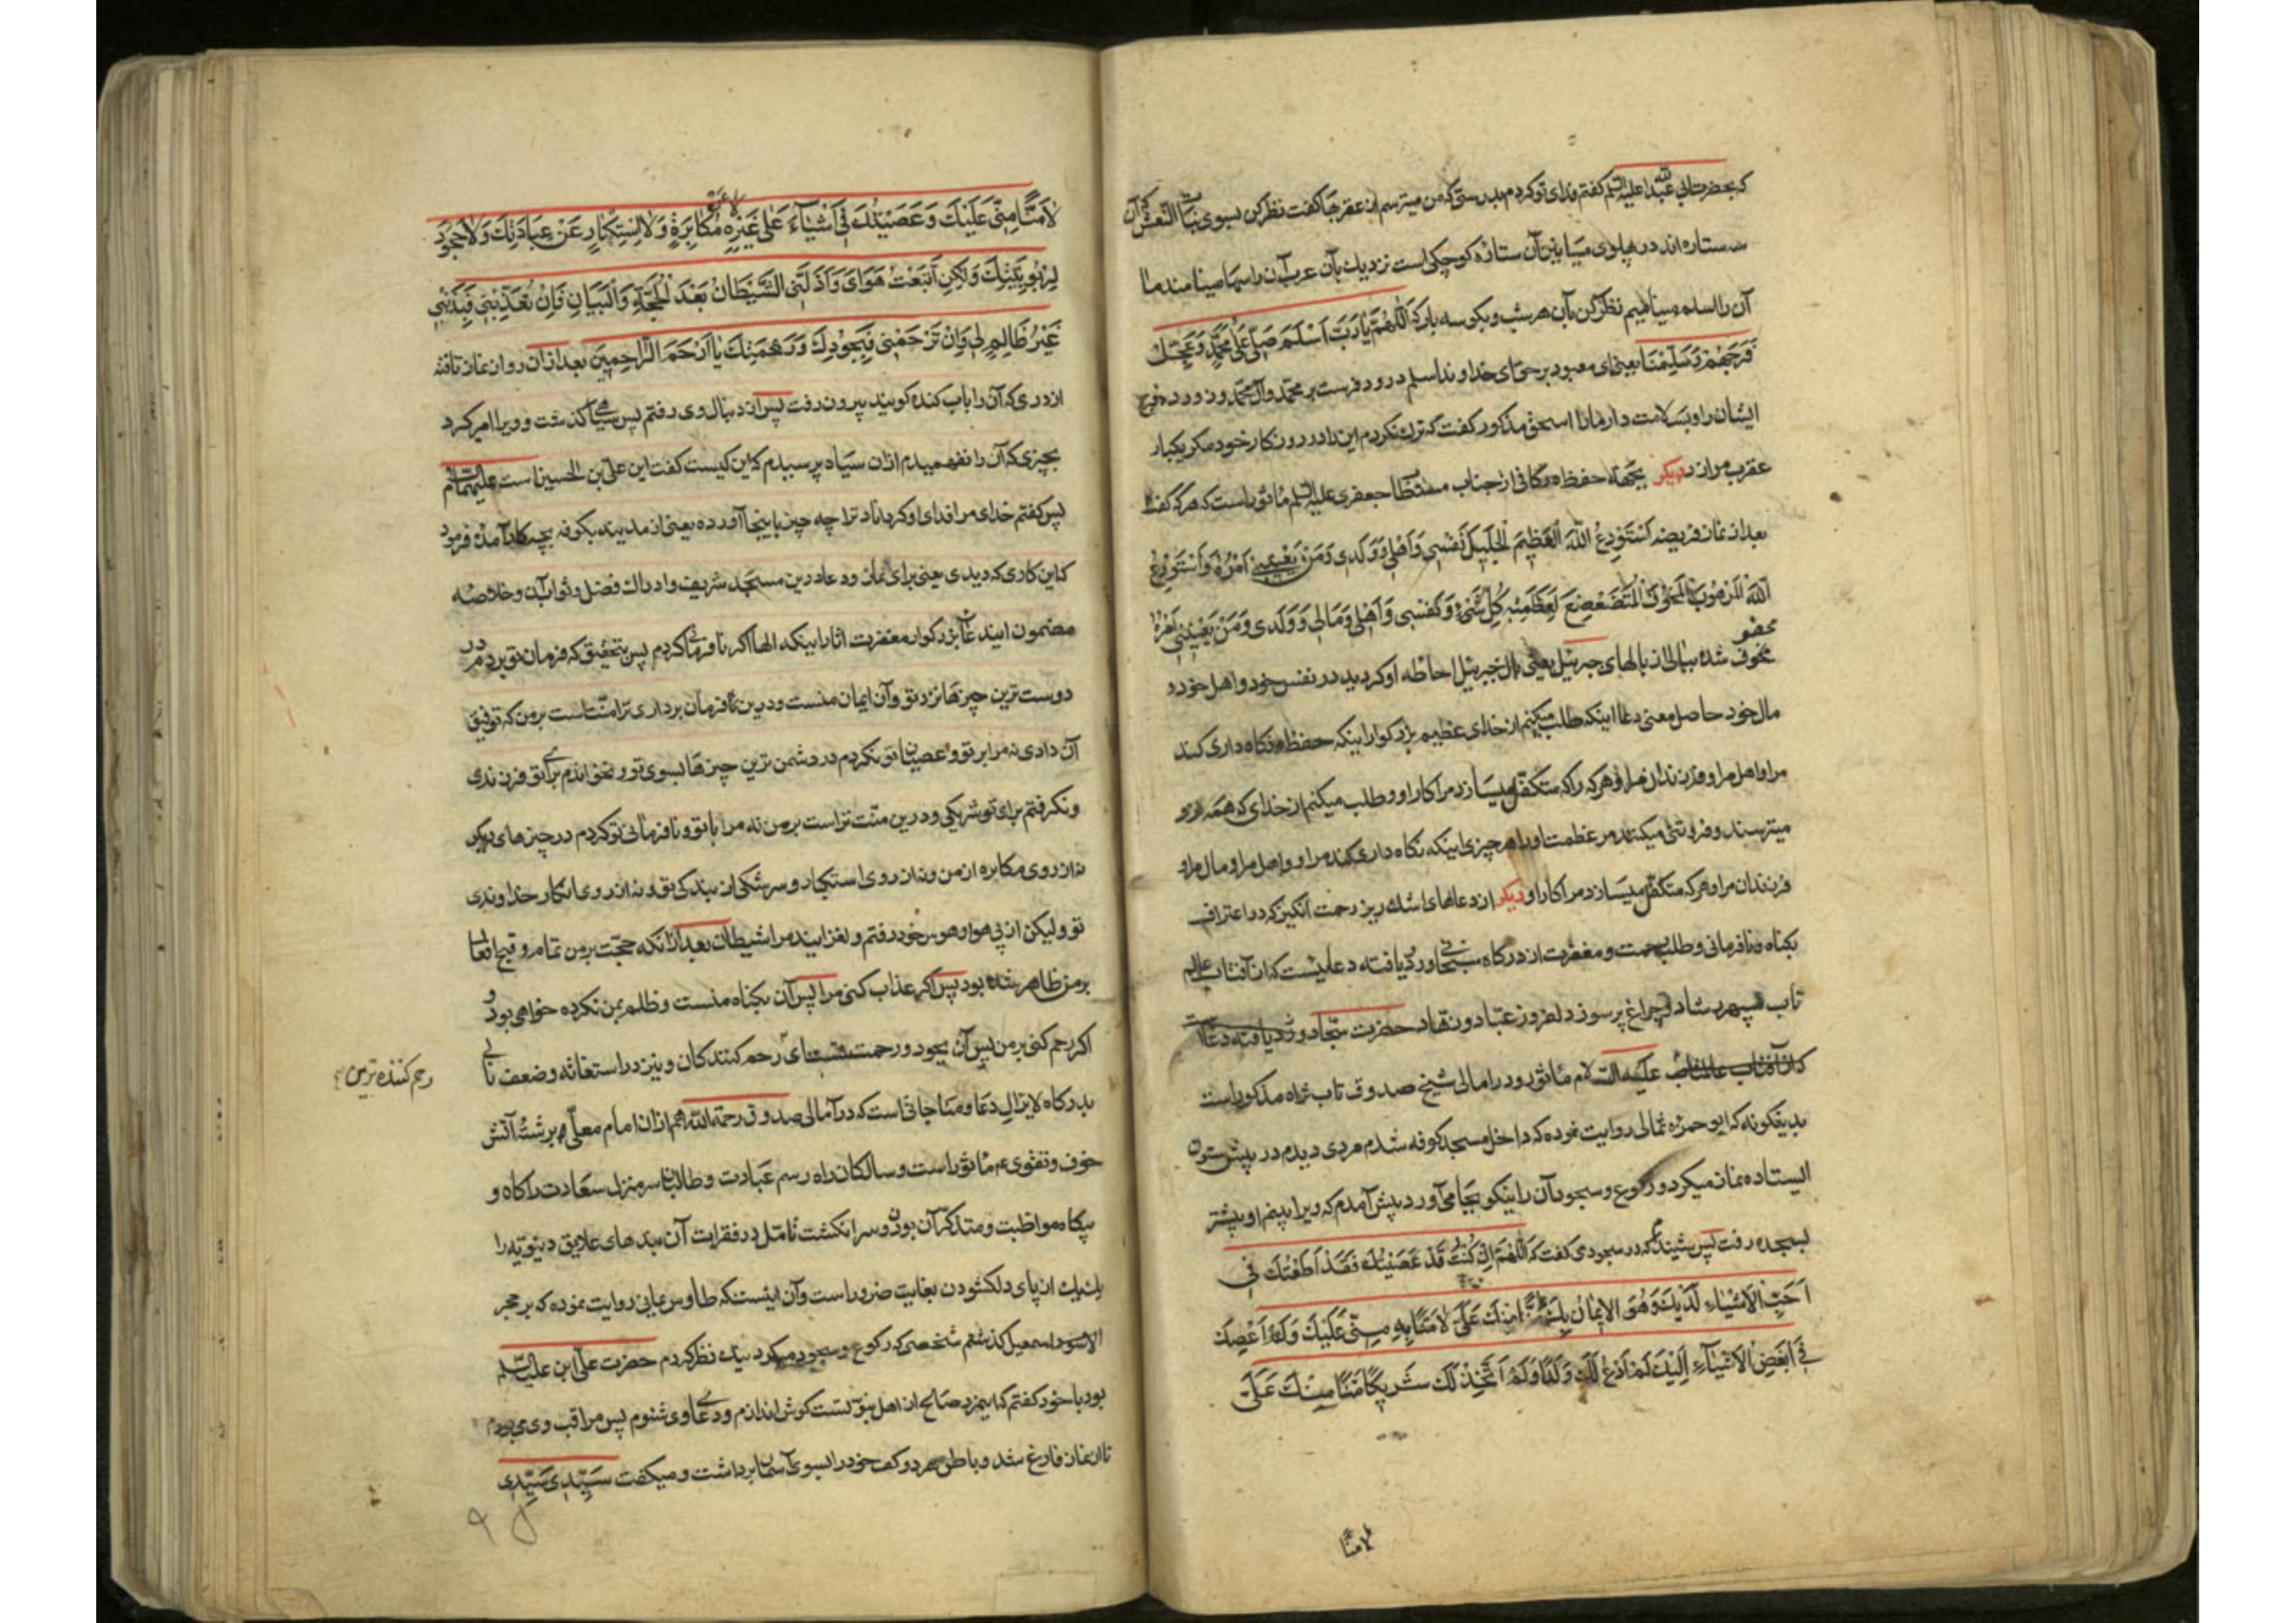 که بحضرت ابی عبدالله علیه السلم گفتم فدای تو کردم بدرستی که من میترسم از عقربها گفت نظر کن بسوی بنات النعش که آن
سه ستاره اند در پهلوی میانین آن ستاره کوچکی است نزدیک بآن عرب آن را سها مینامند و ما
آن را اسلم مینامیم نظر کن بآن هر شب و بگو سه بار که اللهم یا رب اسلم صل علی محمد و عجل
فرجهم و سلمنا یعنی ای معبود بر حق ای خداوند اسلم درود فرست بر محمد و آل محمد و زود در فرج
ایشان را و بسلامت دار ما را اسحق مذکور گفت که ترک نکردم این را در روزکار خود مکر یکبار
عقرب مرا زد دیکر بجهة حفظ در کافی از جناب جعفری علیه السلم ماثور است که هر که گفت
بعد از نماز فریضه استودع الله العظیم الجلیل نفسی و اهلی و ولدی و من یعنینی امره و استودع
الله المرهوب المخوف المتضعضع لعظمته کل شیء و نفسی و اهلی و مالی و ولدی و من یعنینی امره
محفوف شده ببالی از بالهای جبرئیل یعنی بال جبرئیل احاطه او کردید در نفس خود و اهل خود و
مال خود حاصل معنی دعا اینکه طلب میکنم از خدای عظیم بزرکوار اینکه حفظ و نکاه داری کند
مرا و اهل مرا و فرزندان مرا و هر که را که متکفل میسازد مرا کار او و طلب میکنم از خدای که همه ازو
میترسند و فروتنی میکند مر عظمت او را هر چیزی اینکه نکاه داری کند مرا و اهل مرا و مال مرا و
فرزندان مرا و هر که متکفل میسازد مرا کار او دیکر از دعاهای اشک ریز رحمت انکیز که در اعتراف
بکناه و نافرمانی و طلب رحمت و مغفرت از درکاه سبحانی ورود یافته دعائیست که از آفتاب عالم
تاب سپهر رشاد و چراغ پر سوز دلفروز عباد و زهاد حضرت سجاد ورود یافته
علیه السلام ماثور و در امالی شیخ صدوق تاب ثراه مذکور است
بدینکونه که ابو حمزه ثمالی روایت نموده که داخل مسجد کوفه شدم مردی دیدم در پیش ستون
ایستاده نماز میکرد و رکوع و سجود آن را نیکو بجا می آورد پیش آمدم که ویرا ببینم او پیشتر
بسجده رفت پس شنیدم که در سجود می گفت که اللهم ان کنت قد عصیتک فقد اطعتک فی
احب الاشیاء لدیک و هو الایمان بک منا منک علی لا منا به منی علیک و لم اعصک
فی ابغض الاشیاء الیک لم ادع لک ولدا و لم اتخذ لک شریکا منا منک علی
لا منا
لا منا منی علیک و عصیتک فی اشیاء علی غیر مکابرة و لا استکبار عن عبادتک و لا جحود
لربوبیتک و لکن اتبعت هوای و اذلنی الشیطان بعد الحجة و البیان فان تعذبنی فبذنبی
غیر ظالم لی و ان ترحمنی فبجودک و رحمتک یا ارحم الراحمین بعد از ان روان عنان تافته
از دری که آن را باب کنده کویند بیرون رفت پس از دنبال وی رفتم پس بسیاهی کذشت و ویرا امر کرد
بچیزی که آن را نفهمیدم از ان سیاه پرسیدم که این کیست گفت این علی بن الحسین است علیهما السلام
پس کفتم خدای مرا فدای او کرداناد ترا چه چیز باینجا آورده یعنی از مدینه بکوفه بچه کار آمدهٔ فرمود
که این کاری که دیدی یعنی برای نماز و دعا در این مسجد شریف و ادراک فضل و ثواب آن و خلاصه
مضمون ایندعای بزرکوار مغفرت اثار اینکه الها اکر نافرمانی کردم پس بتحقیق که فرمان تو بردم در
دوست ترین چیزها نزد تو و آن ایمان منست و در این فرمان برداری ترا منت است بر من که توفیق
آن دادی نه مرا بر تو و عصیان تو نکردم در دشمن ترین چیزها بسوی تو و نخواندم برای تو فرزندی
و نکرفتم برای تو شریکی و در این منت تراست بر من نه مرا با تو و نافرمانی تو کردم در چیزهای دیکر
نه از روی مکابره از من و نه از روی استکبار و سرکشی از بندکی تو و نه از روی انکار خداوندی
تو و لیکن از پی هوا و هوس خود رفتم و لغزانید مرا شیطان بعد از آنکه حجت بر من تمام و قبح افعال
بر من ظاهر شده بود پس اکر عذاب کنی مرا پس آن بکناه منست و ظلم بمن نکرده خواهی بود و
اکر رحم کنی بر من پس آن بجود و رحمت تست ای رحم کنندکان و نیز در استغاثه و ضعف نالی
رحم کننده ترین
بدرکاه لایزال دعا و مناجاتی است که در آمالی صدوق رحمة الله هم از ان امام معلی و برشتهٔ آتش
خوف و تقوی ماثور است و سالکان راه رسم عبادت و طالبان سرمنزل سعادت را کاه و
بیکاه مواظبت و متذکر آن بودن و سرانکشت تامل در فقرات آن بندهای علایق دنیویه را
یک یک از پای دل کشودن بغایت ضرور است و آن اینست که طاوس یمانی روایت نموده که بر حجر
الاسود اسمعیل کذشتم شخصی که رکوع و سجود میکرد نیک نظر کردم حضرت علی ابن علیه السلم
بود با خود کفتم که اینمرد صالح از اهل نبوتست کوش اندازم و دعای وی شنوم پس مراقب وی می بودم
تا از نماز فارغ شد و باطن هر دو کف خود را بسوی آسمان برداشت و میکفت سیدی سیدی